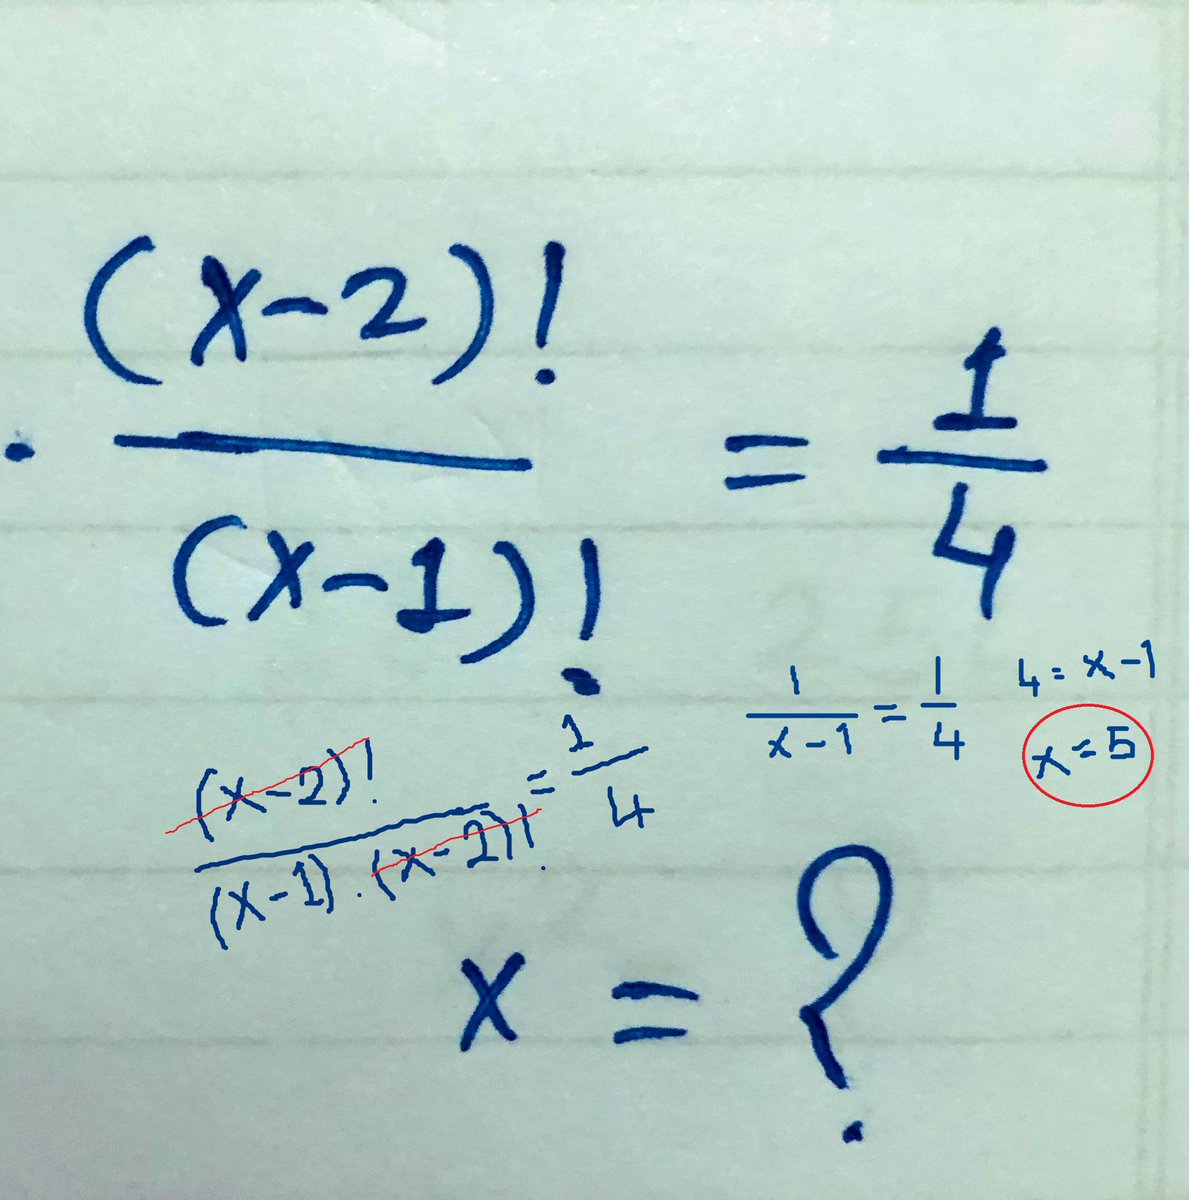 (x-2)!
(x-1)!
= 1/4
(x-2)!
(x-1).(x-2)!
= 1/4
1/(x-1) = 1/4
4 = x-1
x = 5
x = ?